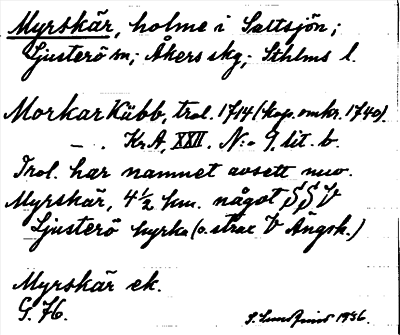 Myrskär, holme i Saltsjön;
Ljusterö sn; Åkers skg; Sthlms l.
Morkar Kübb, trol. 1714 (kop. omkr. 1740).
— . Kr.A, XXII. N:o 9, lit. b.
Trol. har namnet avsett nuv.
Myrskär, 4 ½ km. något S S V
Ljusterö kyrka (o. strax V Ängsh.)
Myrskär ek.
G. 76.
1936.